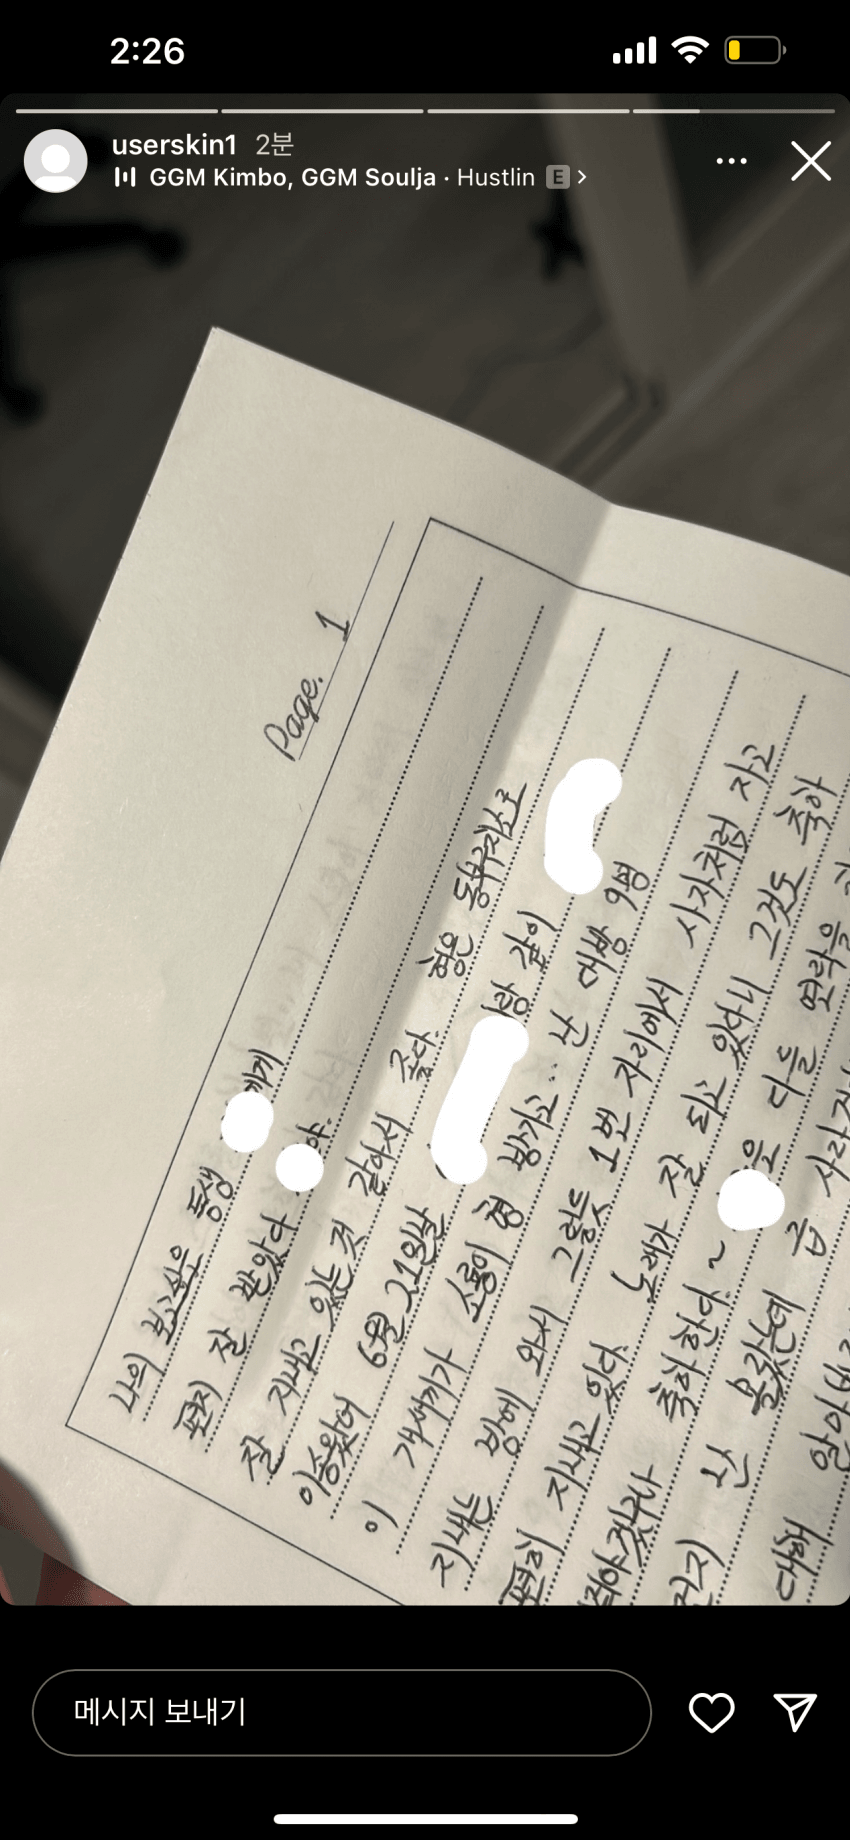 2:26
userskin1 2분
GGM Kimbo, GGM Soulja · Hustlin E >
Page. 1
나의 보고싶은 동생 에게
편지 잘 받았다 야.
잘 지내고 있는 것 같아서 좋다. 형은 동부구치소로
이송왔어 6월 21일날 랑 같이
이 개새끼가 소름이 형 방가고.. 난 대방 9명
지내는 방에 와서 그럴듯 1번 자리에서 사자처럼 자고
편히 지내고 있다. 노래가 잘 되고 있다니 그것도 축하
축하한다.~ 은 다들 연락을
난 몰랐는데 급
대해
메시지 보내기